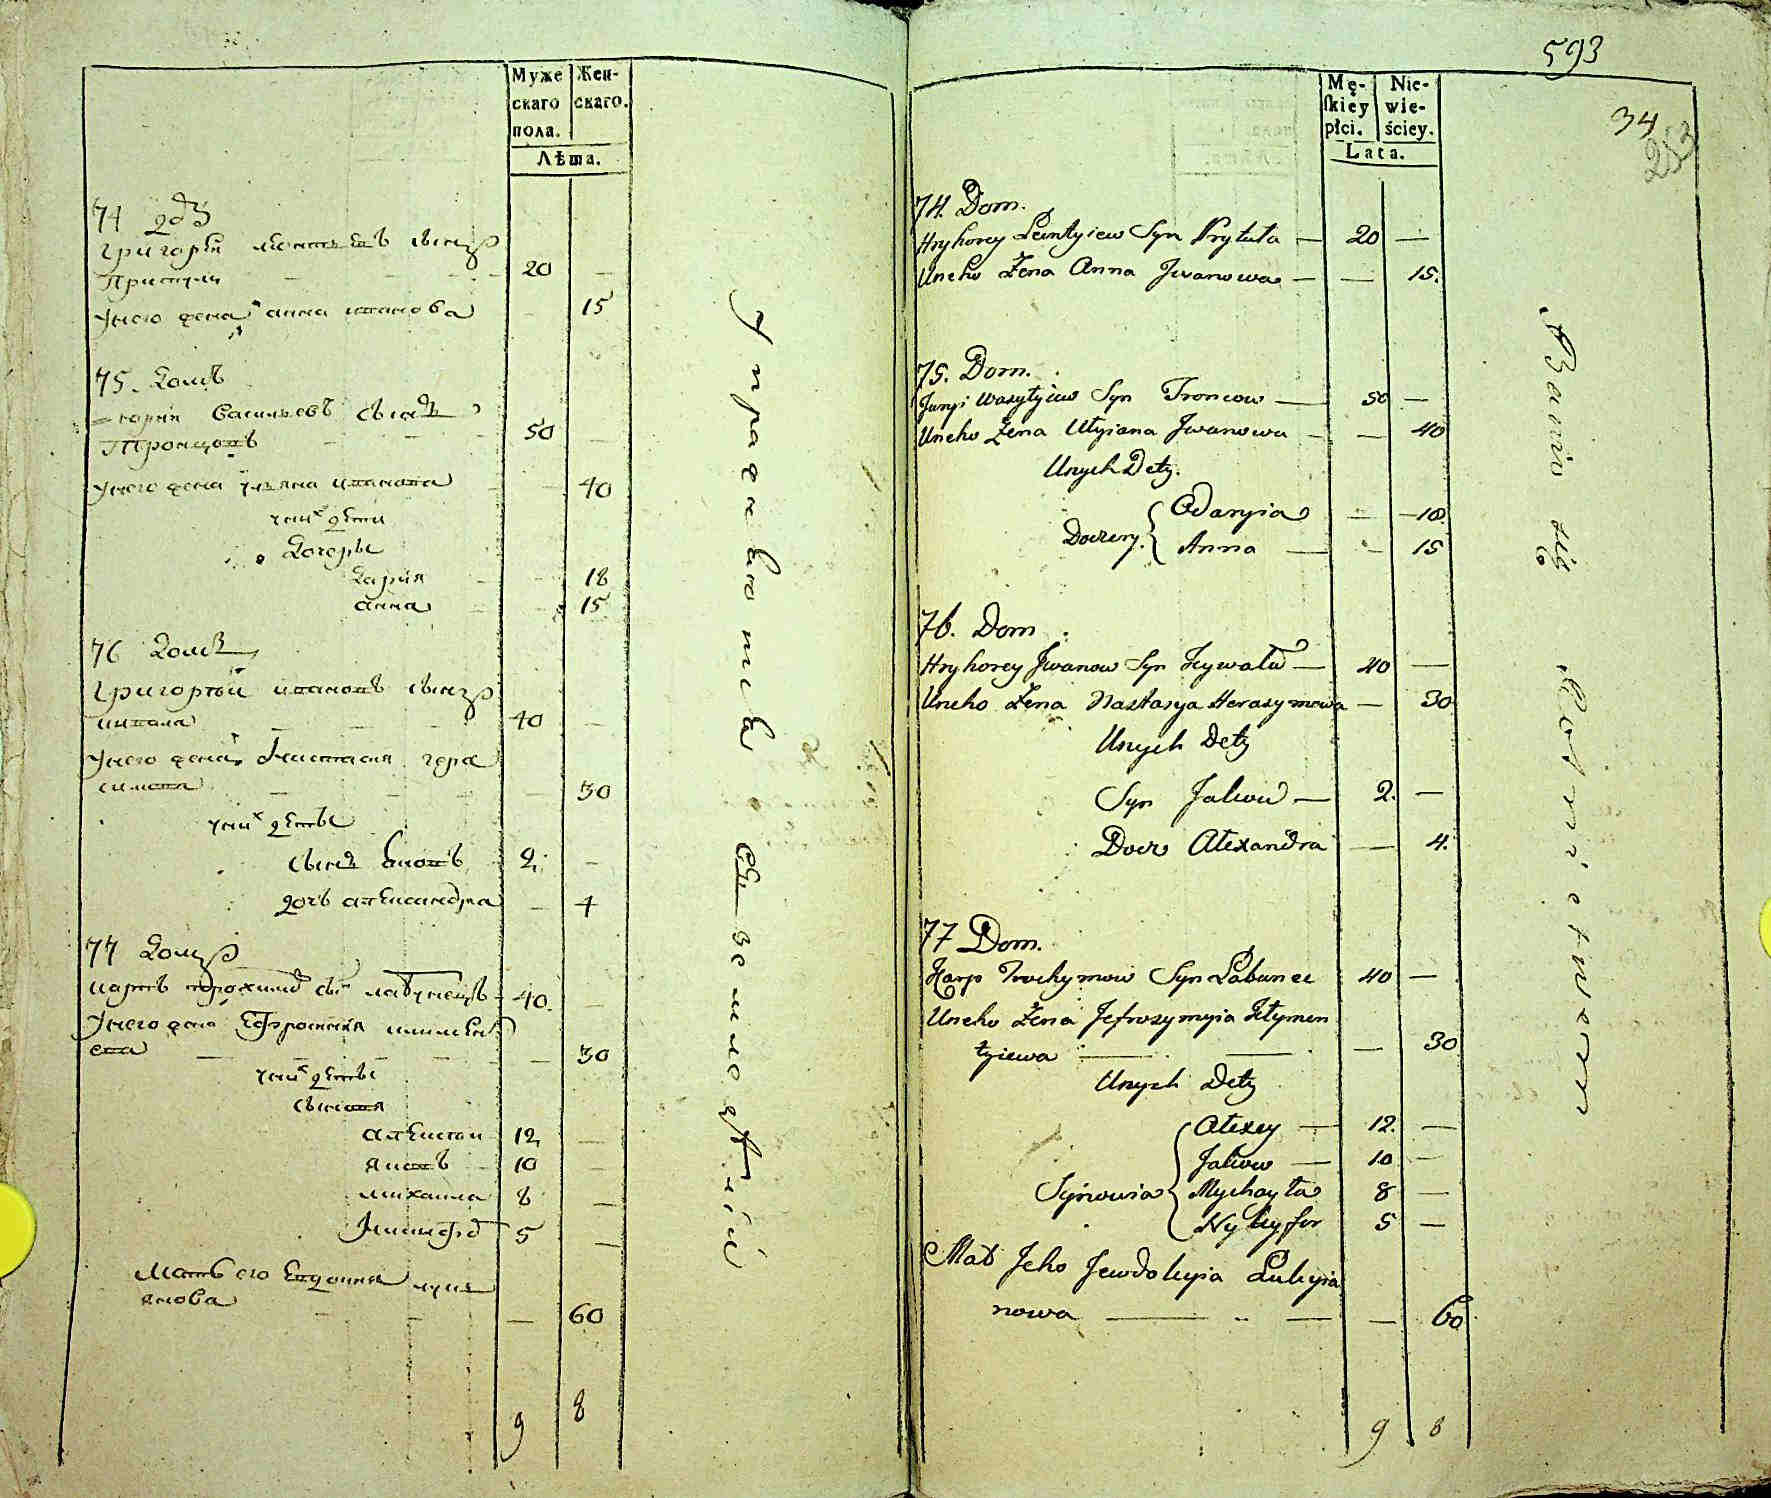 Муже
скаго
пола.
Жен-
скаго.
Лѣта.
74 дॊмъ
Григорій Леонтіевъ сынъ
Притула — 20 —
У него жена анна иванова — 15
75. Домъ
Юрій Васильевъ сынъ
Тронцовъ — 50 —
У него жена ульяна иванова — 40
у них дети
Дочеры
Дарія — 18
анна — 15
76 Домъ
Григорій ивановъ сынъ
цивала — 40 —
У него жена Анастасия гера
симова — 30
у них дети
сынъ яковъ 2 —
дочь александра — 4
77 Домъ
карпъ трохимовъ сынъ лабунецъ 40 —
У него жена Ефросинія климен
ева — 30
у них дети
сыновя
алексій 12 —
яковъ 10 —
михаила 8 —
Никифоръ 5 —
Мать его Евдокия лукя
янова — 60
9 8
Упражняются въ земледѣліи
593
34
253
Mę-
skiey
płci.
Nie-
wie-
ściey.
Lata.
74. Dom.
Hryhorey Leintyiew Syn Prytuła — 20 —
Uneho Żena Anna Jwanowa — — 15.
75. Dom.
Juryi Wasylyiew Syn Troncow — 50 —
Uneho Żena Ulyiana Jwanowa — — 40
Unych Dety.
Doczery. Odaryia — 18.
Anna — — 15
76. Dom.
Hryhorey Jwanow Syn Cywała — 40 —
Uneho Żena Nastasya Herasymowa — 30
Unych Dety
Syn Jakow — 2. —
Docz Alexandra — 4.
77 Dom.
Karp Trochymow Syn Łabunec 40 —
Uneho Żena Jefrosymyia Kłymen
tyiewa — — — 30
Unych Dety
Synowia Alexey — 12. —
Jakow — 10 —
Mychayła 8 —
Nykyfor 5 —
Mat Jeho Jewdokyia Łukyia
nowa — — — 60
9 8
Bawio się Rolnictwem